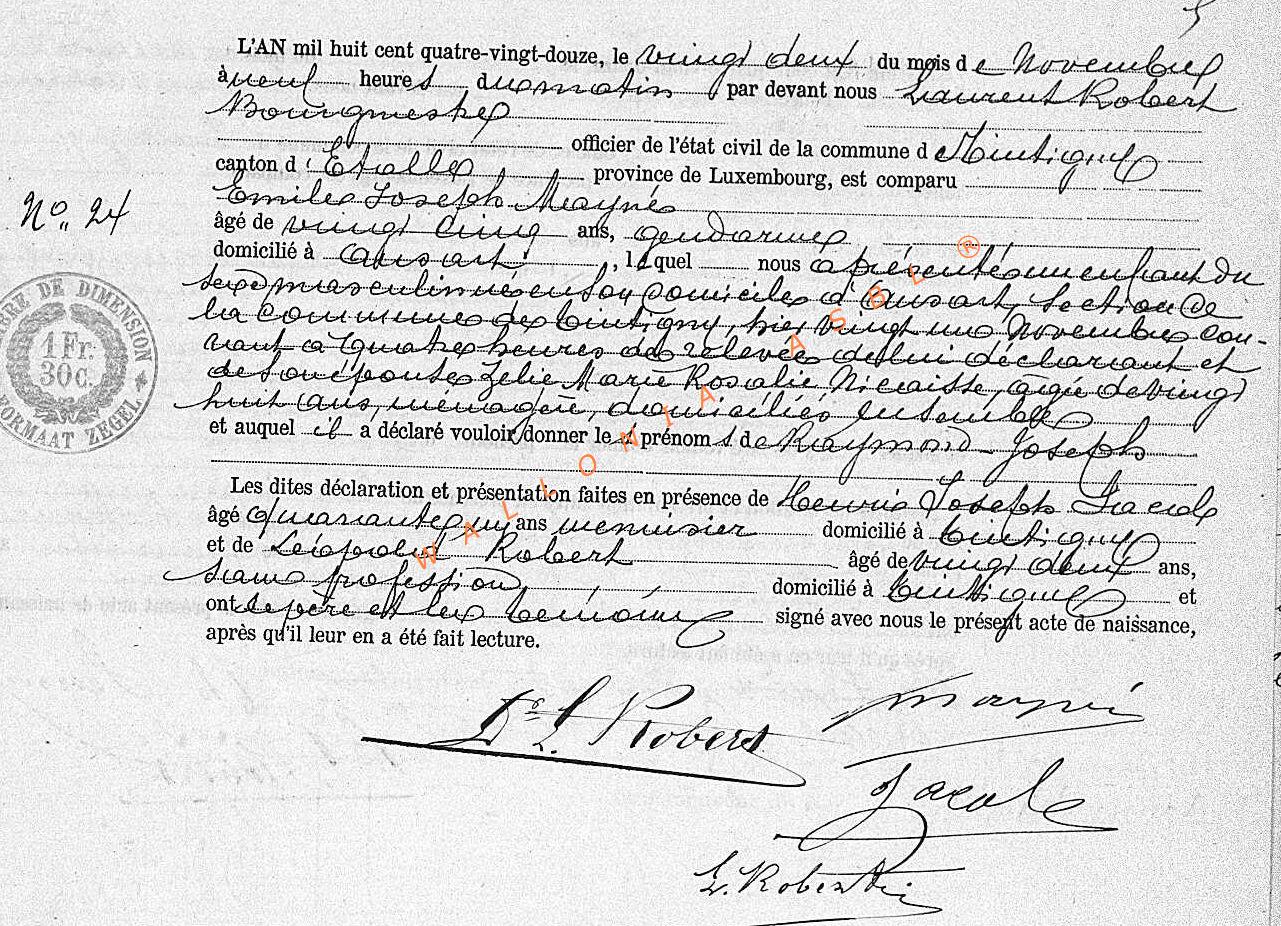 L'AN mil huit cent quatre-vingt-douze, le vingt deux du mois de Novembre
à neuf heures du matin par devant nous Laurent Robert
Bourgmestre
officier de l'état civil de la commune de Tintigny
canton d'Etalle, province de Luxembourg, est comparu
Emile Joseph Mayné
âgé de vingt cinq ans, gendarme
domicilié à Ansart, lequel nous a présenté un enfant du
sexe masculin né en son domicile d'Ansart, section de
la commune de Tintigny, hier vingt un Novembre cou-
rant à quatre heures de relevée de lui déclarant et
de son épouse Zélie Marie Rosalie Nicaisse, agée de vingt
huit ans, menagère, domiciliés ensemble
et auquel il a déclaré vouloir donner les prénoms de Raymond Joseph
Les dites déclaration et présentation faites en présence de Henri Joseph
âgé quarante ans menuisier domicilié à Tintigny
et de Léopold Robert âgé de vingt deux ans,
sans profession domicilié à Tintigny et
ont le père et les témoins signé avec nous le présent acte de naissance,
après qu'il leur en a été fait lecture.
No. 24
DE DIMENSION
1 Fr.
30 c.
FORMAAT ZEGEL
WALLONIA ASBL ®
Dr L. Robert
Mayné
L. Robert